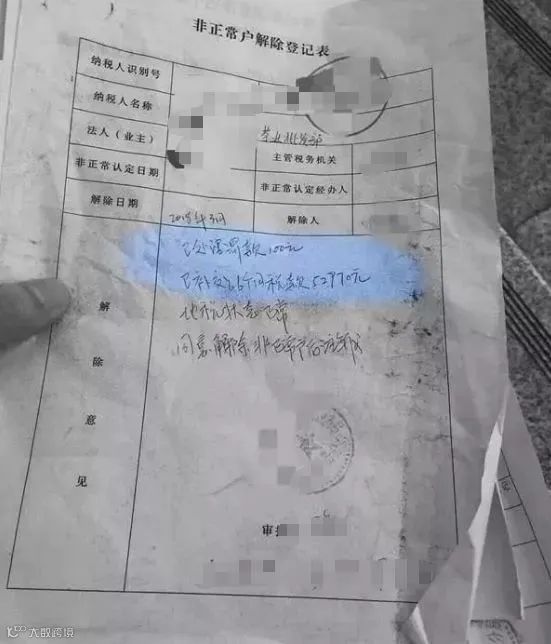 非正常户解除登记表
纳税人识别号
纳税人名称
法人（业主） 茶业批发部
非正常认定日期 主管税务机关
非正常认定经办人
解除日期 2015年3月 解除人
已处理罚款100元
已补交 个月税款52970元
他税状态正常
同意解除非正常户
解
除
意
见
审批
大数跨境